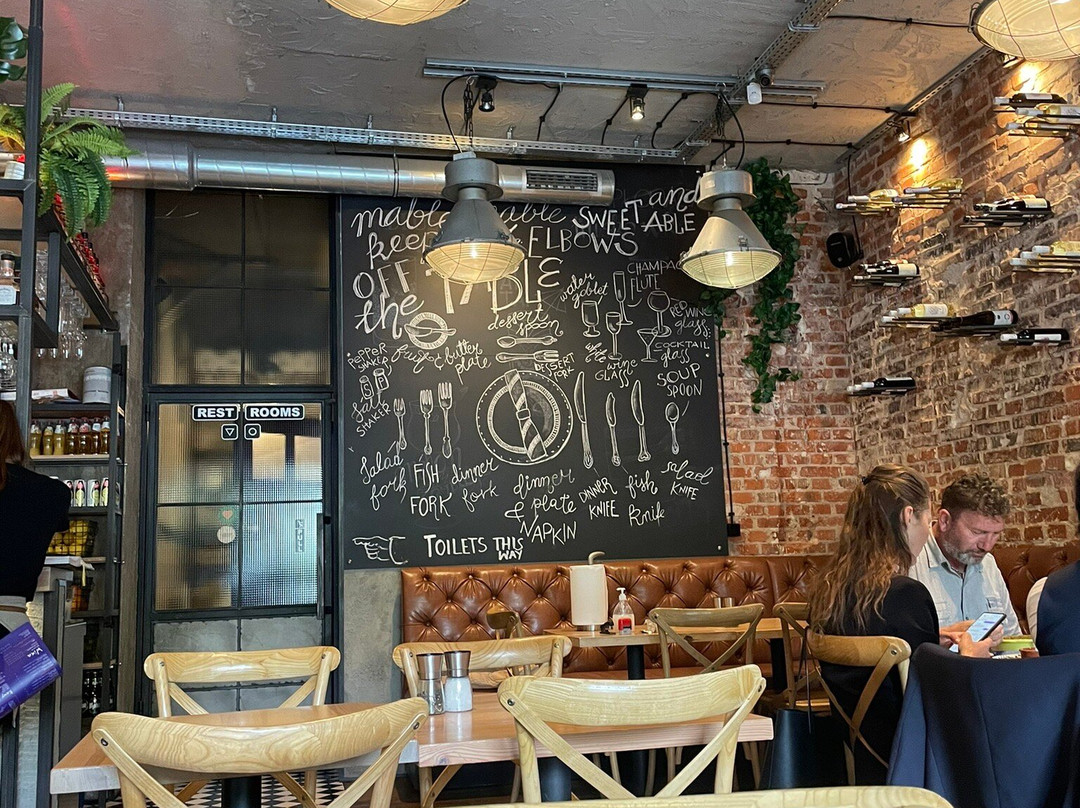 and
SWEET TABLE
keep ELBOWS
OFF
the TABLE
water
goblet
CHAMPAGNE
FLUTE
RED WINE
glass
COCKTAIL
glass
white wine
GLASS
dessert
spoon
DESSERT
FORK
bread & butter
plate
PEPPER
SHAKER
Salt
SHAKER
SOUP
SPOON
Salad
fork
FISH
FORK
dinner
fork
dinner
plate
& NAPKIN
DINNER
KNIFE
fish
Knife
salad
KNIFE
TOILETS THIS
WAY
REST ROOMS
PULL